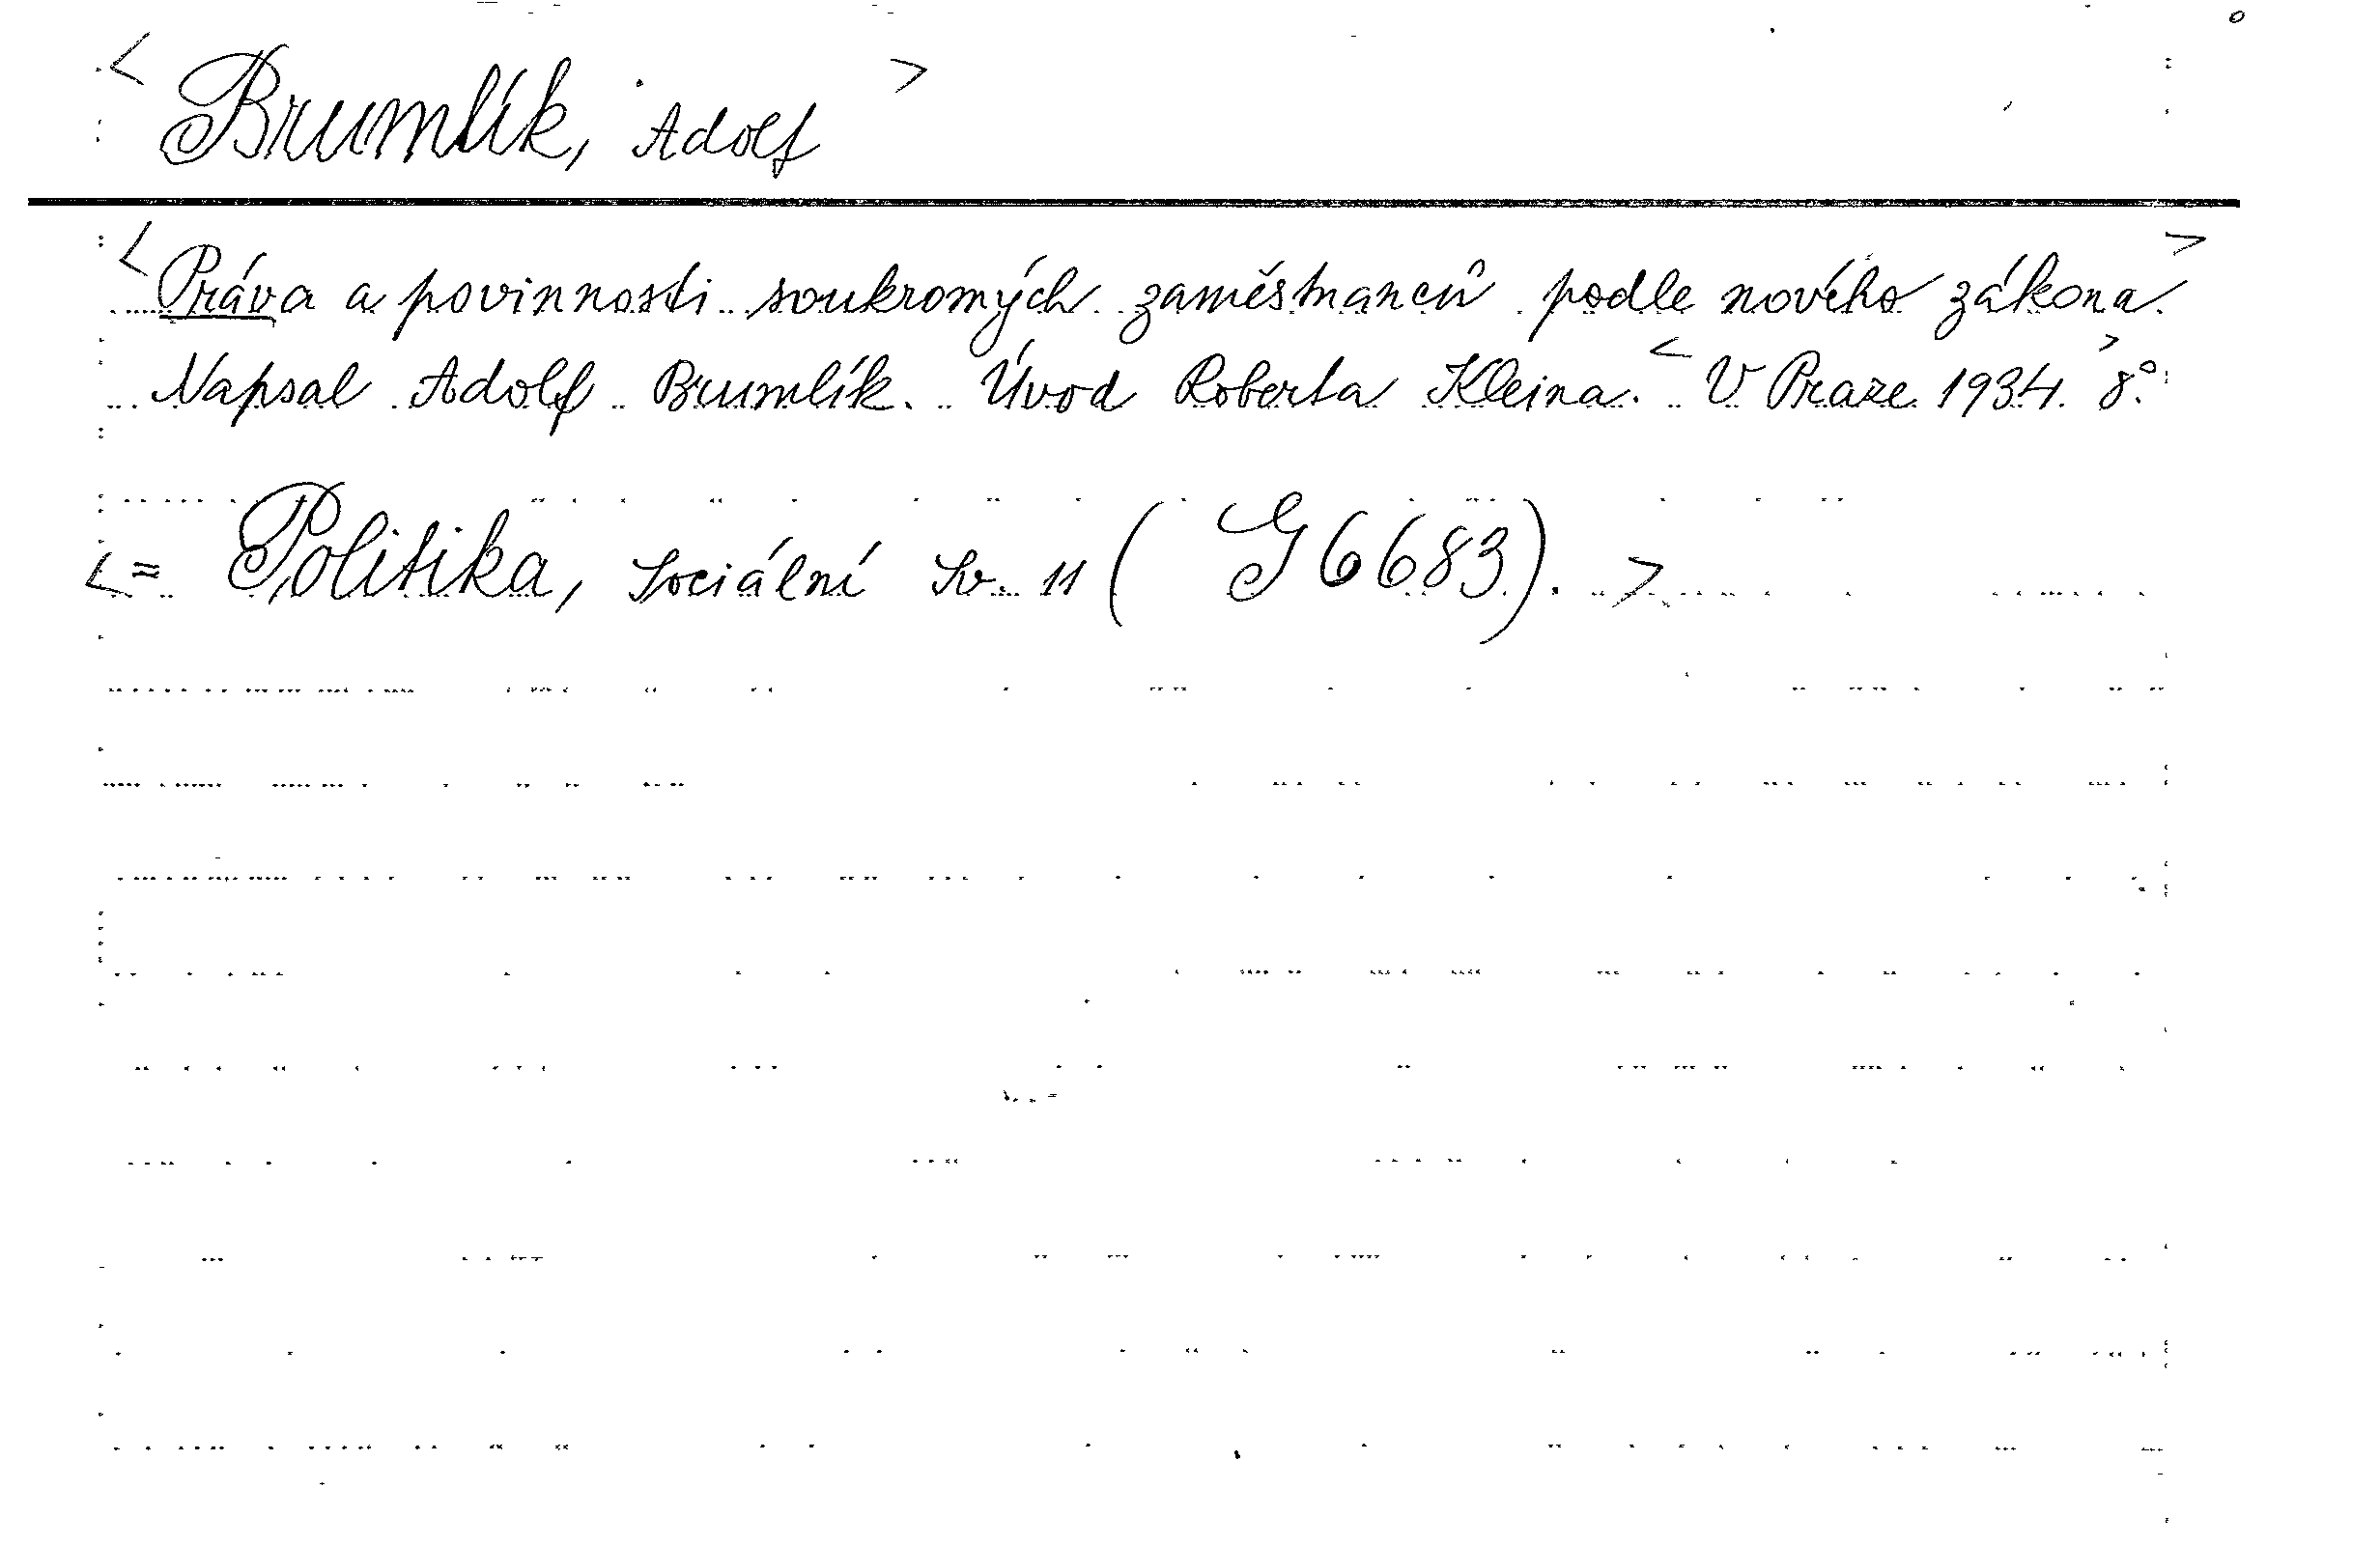 < Brumlík, Adolf >
< Práva a povinnosti soukromých zaměstnanců podle nového zákona. >
Napsal Adolf Brumlík. Úvod Roberta Kleina. < V Praze 1934. > 8°.
< = Politika, sociální Sv. 11 ( G 6683). >